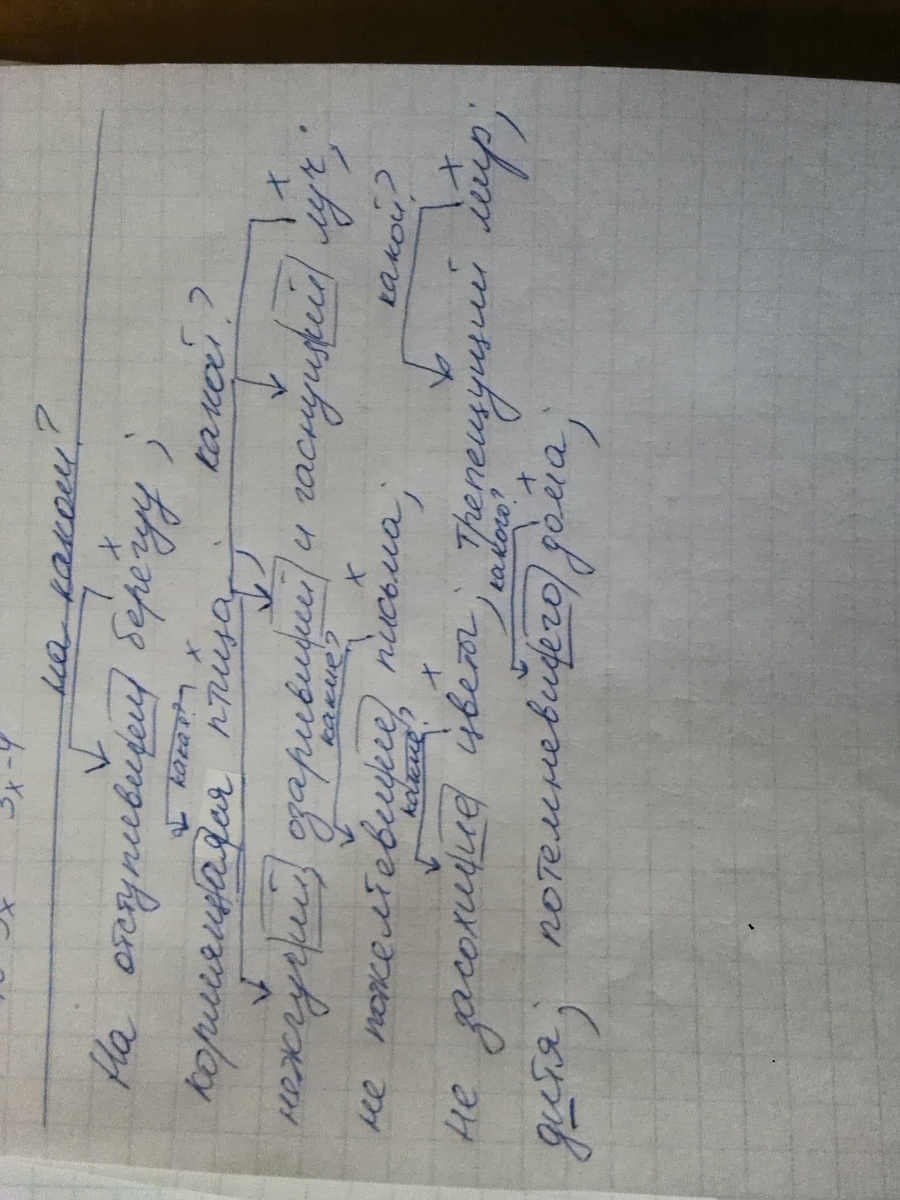 на каком?
x
На отступившем берегу;
какая? x какой?
кормящая птица;
x
нежгучий озаривший и гаснущий луч;
какие? x какой?
не пожелтевшие письма;
какие? x x
не засохшие цветы, трепещущий мир;
какого? x
дитя; потемневшего дома,